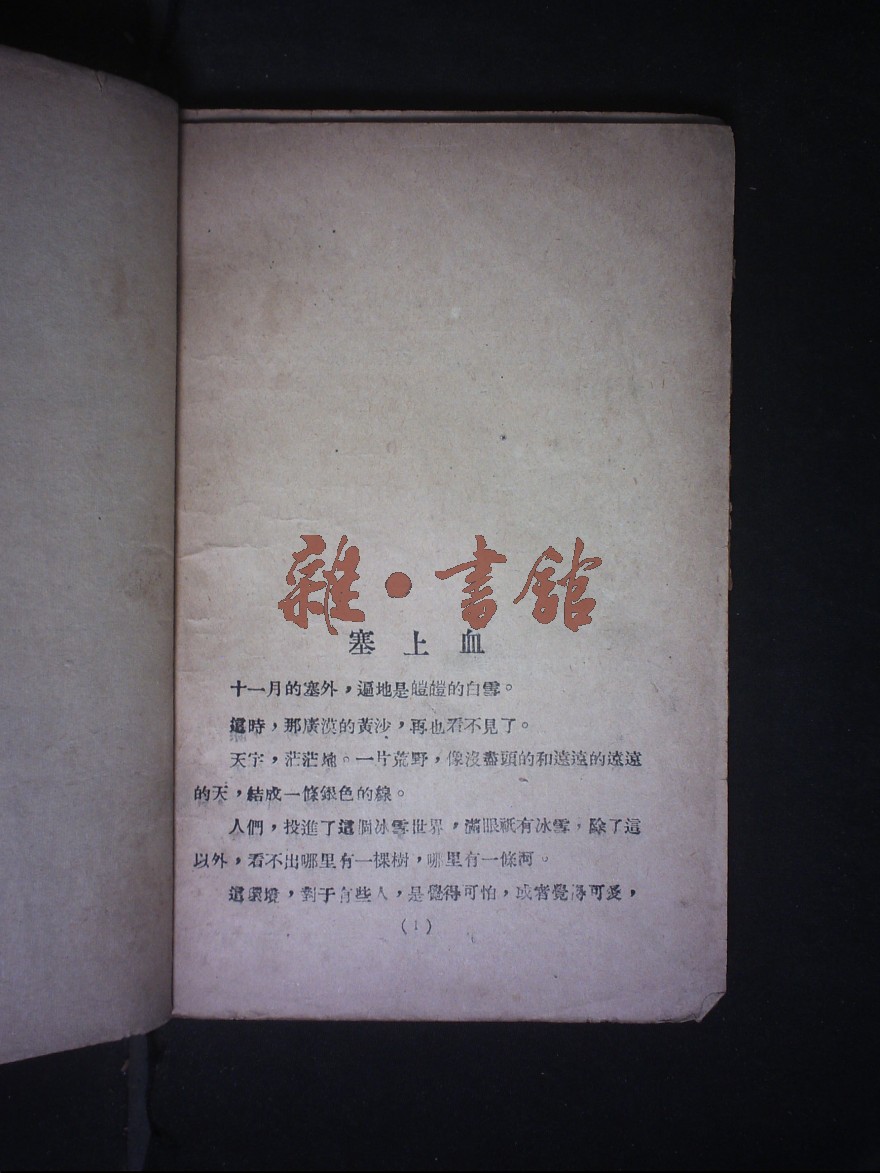 雜·書館
塞上血
十一月的塞外，逼地是皚皚的白雪。
這時，那廣漠的黃沙，再也看不見了。
天宇，茫茫地。一片荒野，像沒盡頭的和遠遠的遠遠
的天，結成一條銀色的線。
人們，投進了這個冰雪世界，滿眼祇有冰雪，除了這
以外，看不出哪里有一棵樹，哪里有一條河。
這環境，對于有些人，是覺得可怕，或者覺得可愛，
(1)